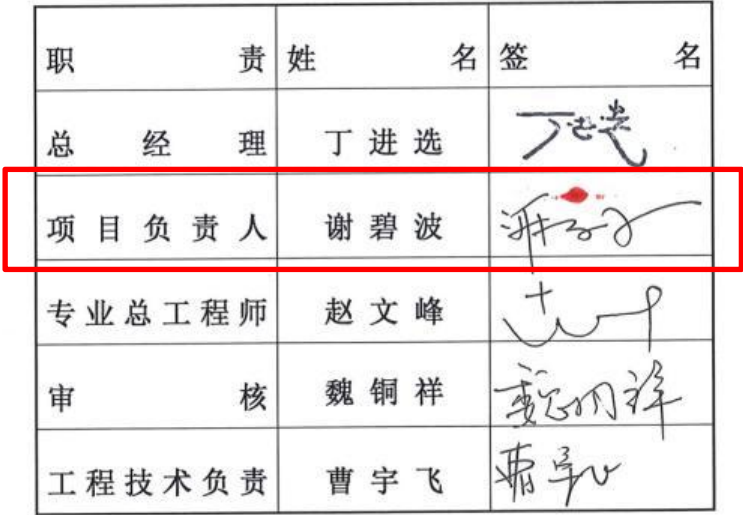 职责 姓名 签名
总经理 丁进选 丁进选
项目负责人 谢碧波
专业总工程师 赵文峰
审核 魏铜祥 魏铜祥
工程技术负责 曹宇飞 曹宇飞